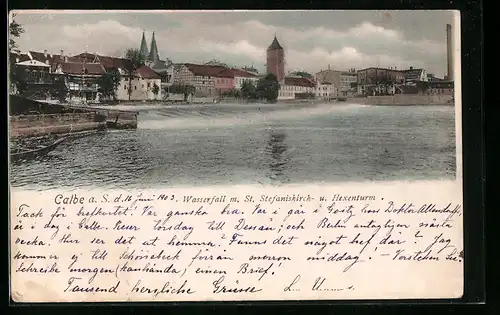 Calbe a. S. d. 16 Juni 1903. Wasserfall m. St. Stefaniskirch- u. Hexenturm.
Tack för brefkortet! Var ganska bra. Var i går i hos Doktor
är i dag i Calbe. Reser torsdag till Dessau, och Berlin antagligen nästa
vecka. Hur ser det ut hemma? Fanns det något bref der? Jag
kommer ej till Schönebeck förran morgon middag. - Verstehen Sie?
Schreibe morgen (kanhända) einen Brief!
Tausend herzliche Grüsse